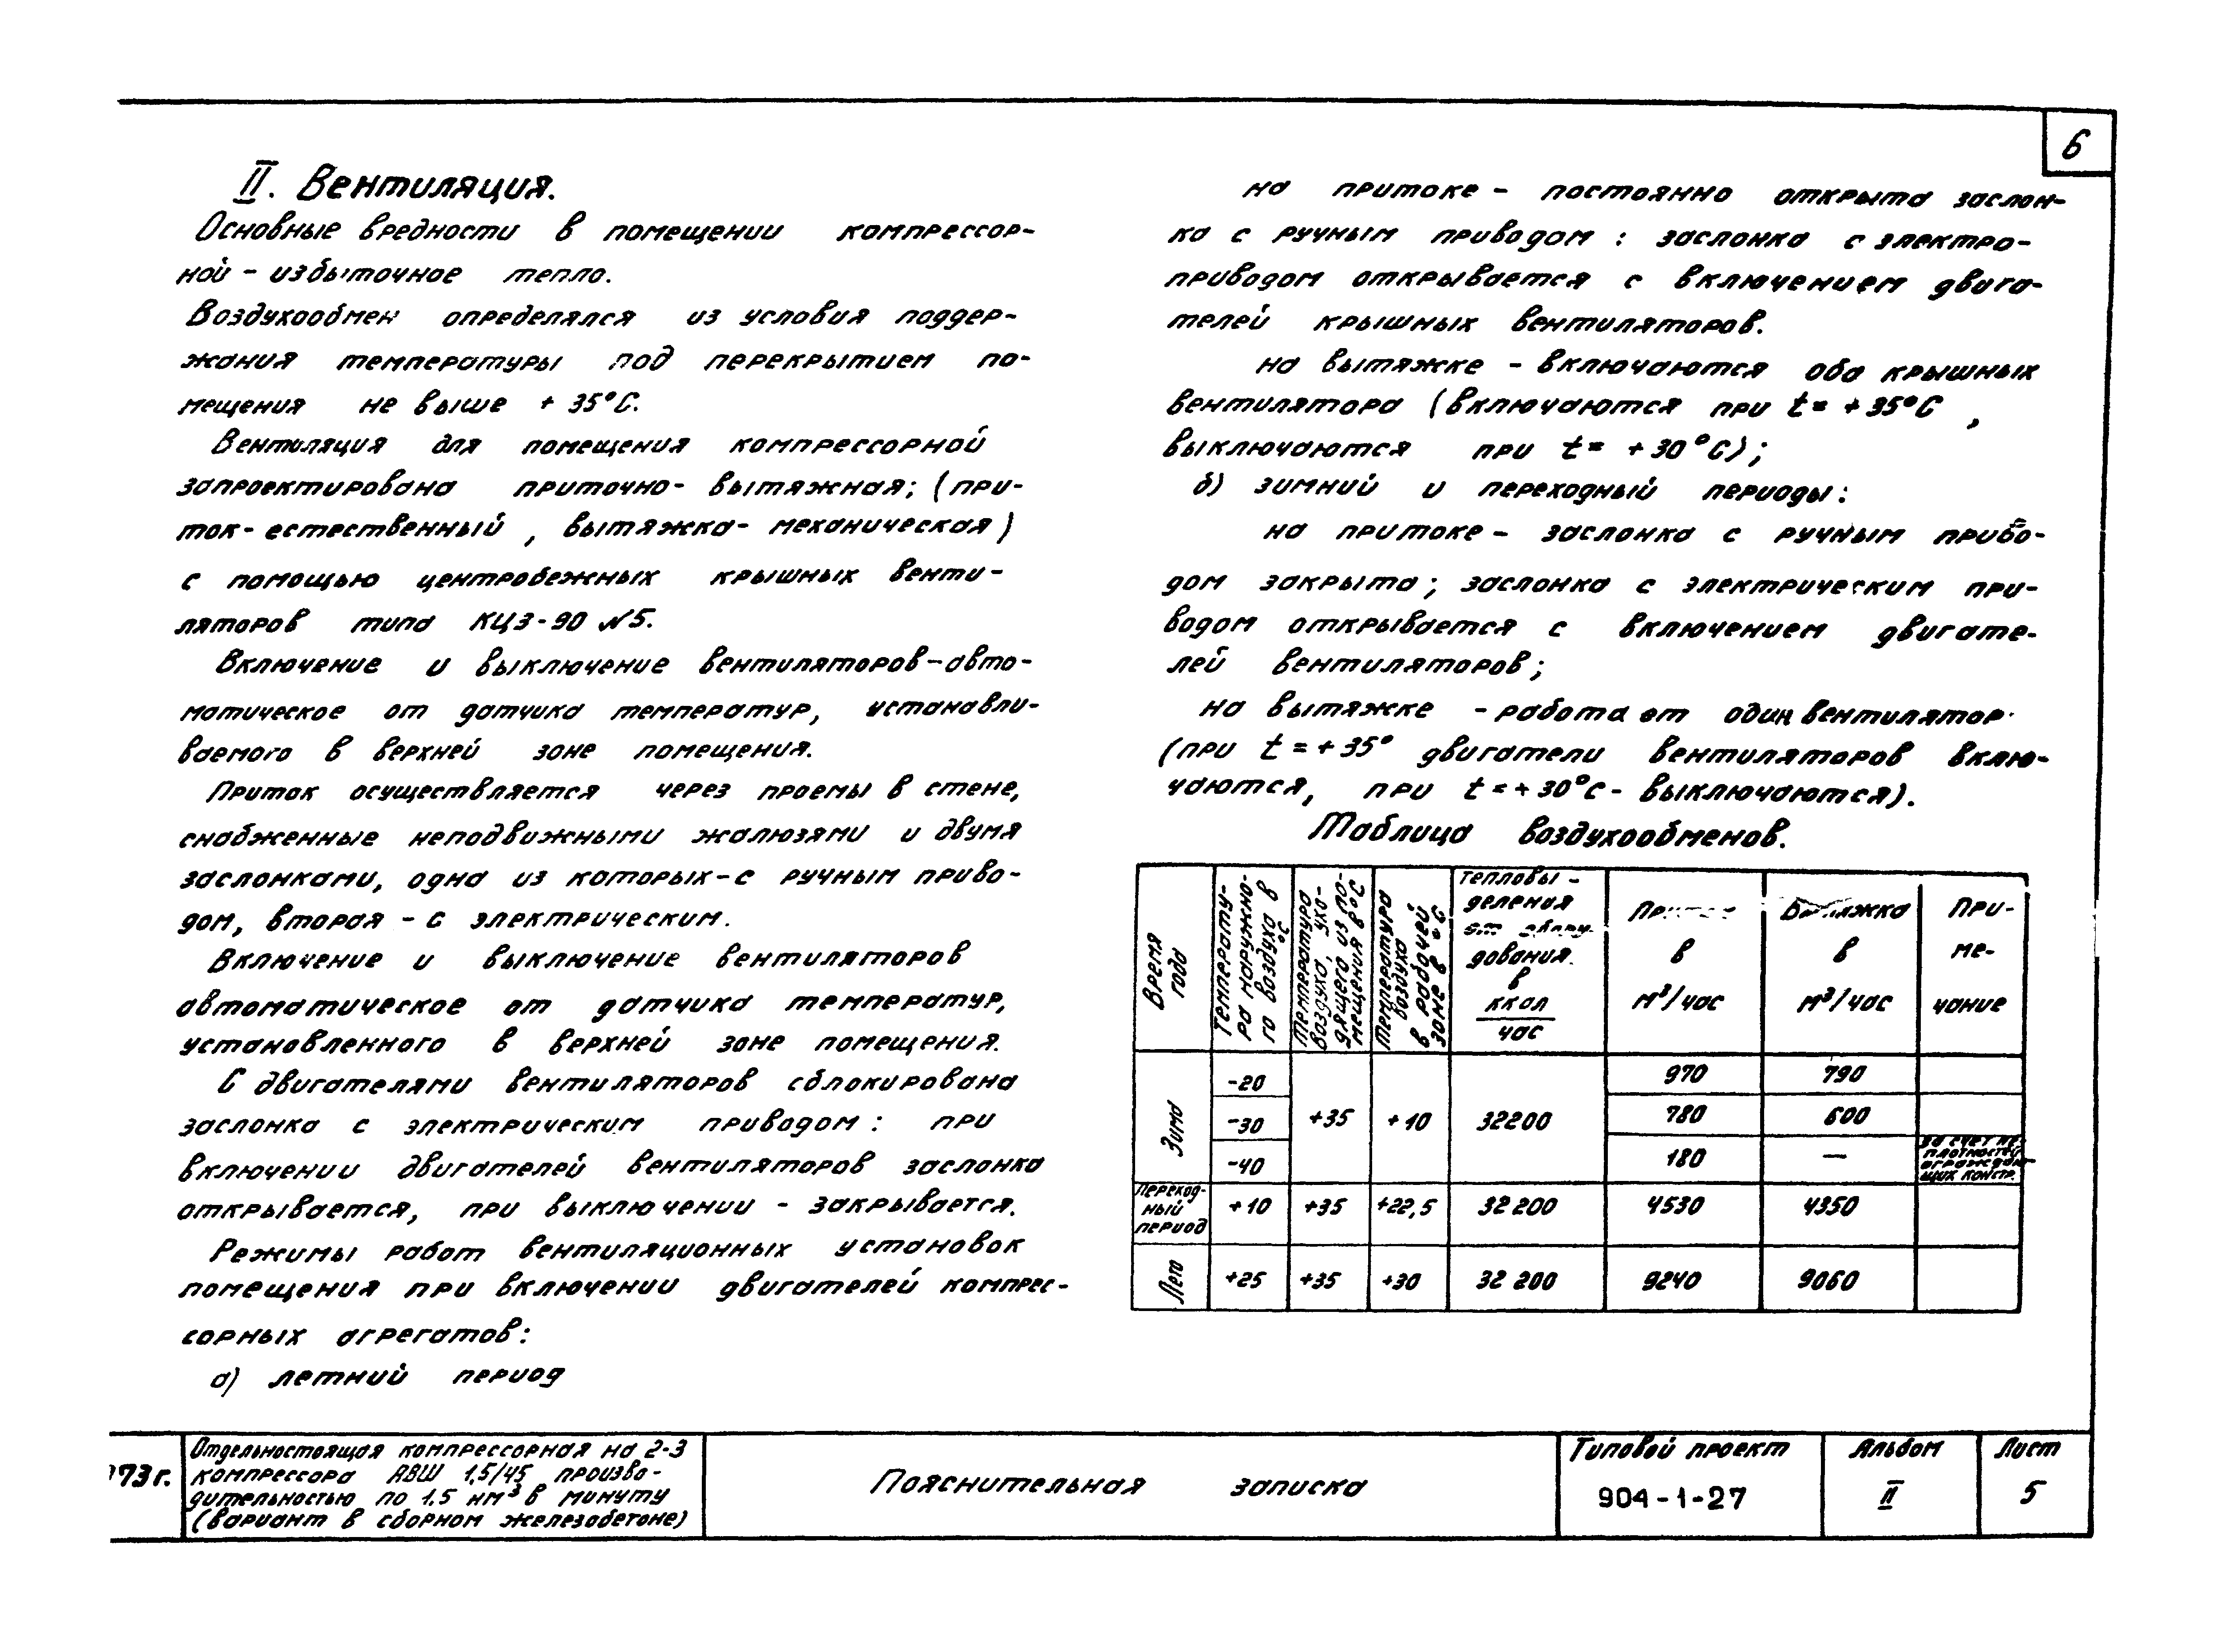 6
II. Вентиляция.
Основные вредности в помещении компрессор-
ной - избыточное тепло.
Воздухообмен определялся из условия поддер-
жания температуры под перекрытием по-
мещения не выше + 35°С.
Вентиляция для помещения компрессорной
запроектирована приточно- вытяжная; (при-
ток- естественный, вытяжка- механическая)
с помощью центробежных крышных венти-
ляторов типа КЦ3-90 №5.
Включение и выключение вентиляторов-авто-
матическое от датчика температур, устанавли-
ваемого в верхней зоне помещения.
Приток осуществляется через проемы в стене,
снабженные неподвижными жалюзями и двумя
заслонками, одна из которых-с ручным приво-
дом, вторая - с электрическим.
Включение и выключение вентиляторов
автоматическое от датчика температур,
установленного в верхней зоне помещения.
С двигателями вентиляторов сблокирована
заслонка с электрическим приводом: при
включении двигателей вентиляторов заслонка
открывается, при выключении - закрывается.
Режимы работ вентиляционных установок
помещения при включении двигателей компрес-
сорных агрегатов:
а) летний период
на притоке - постоянно открыта заслон-
ка с ручным приводом: заслонка с электро-
приводом открывается с включением двига-
телей крышных вентиляторов.
на вытяжке - включаются оба крышных
вентилятора (включаются при t= +35°С,
выключаются при t= +30°С);
б) зимний и переходный периоды:
на притоке - заслонка с ручным приво-
дом закрыта; заслонка с электрическим при-
водом открывается с включением двигате-
лей вентиляторов;
на вытяжке - работа от один вентилятор.
(при t=+35° двигатели вентиляторов вклю-
чаются, при t=+30°С- выключаются).
Таблица воздухообменов.
Время года
Температу-
ра наружно-
го воздуха в
°С
Температура
воздуха, ухо-
дящего из по-
мещения в °С
Температура
воздуха
в рабочей
зоне в °С
Тепловы-
деления
от обору-
дования.
в
ккал
час
Приток
в
м³/час
Вытяжка
в
м³/час
При-
ме-
чание
Зима
-20 +35 +10 32200 970 790
-30 780 600
-40 180 — за счет не-
плотностей
ограждаю-
щих констр.
Переход-
ный
период
+10 +35 +22,5 32 200 4530 4350
Лето +25 +35 +30 32 200 9240 9060
973г.
Отдельностоящая компрессорная на 2-3
компрессора АВШ 1,5/45 произво-
дительностью по 1,5 нм³ в минуту
(вариант в сборном железобетоне)
Пояснительная записка
Типовой проект
904-1-27
Альбом
II
Лист
5